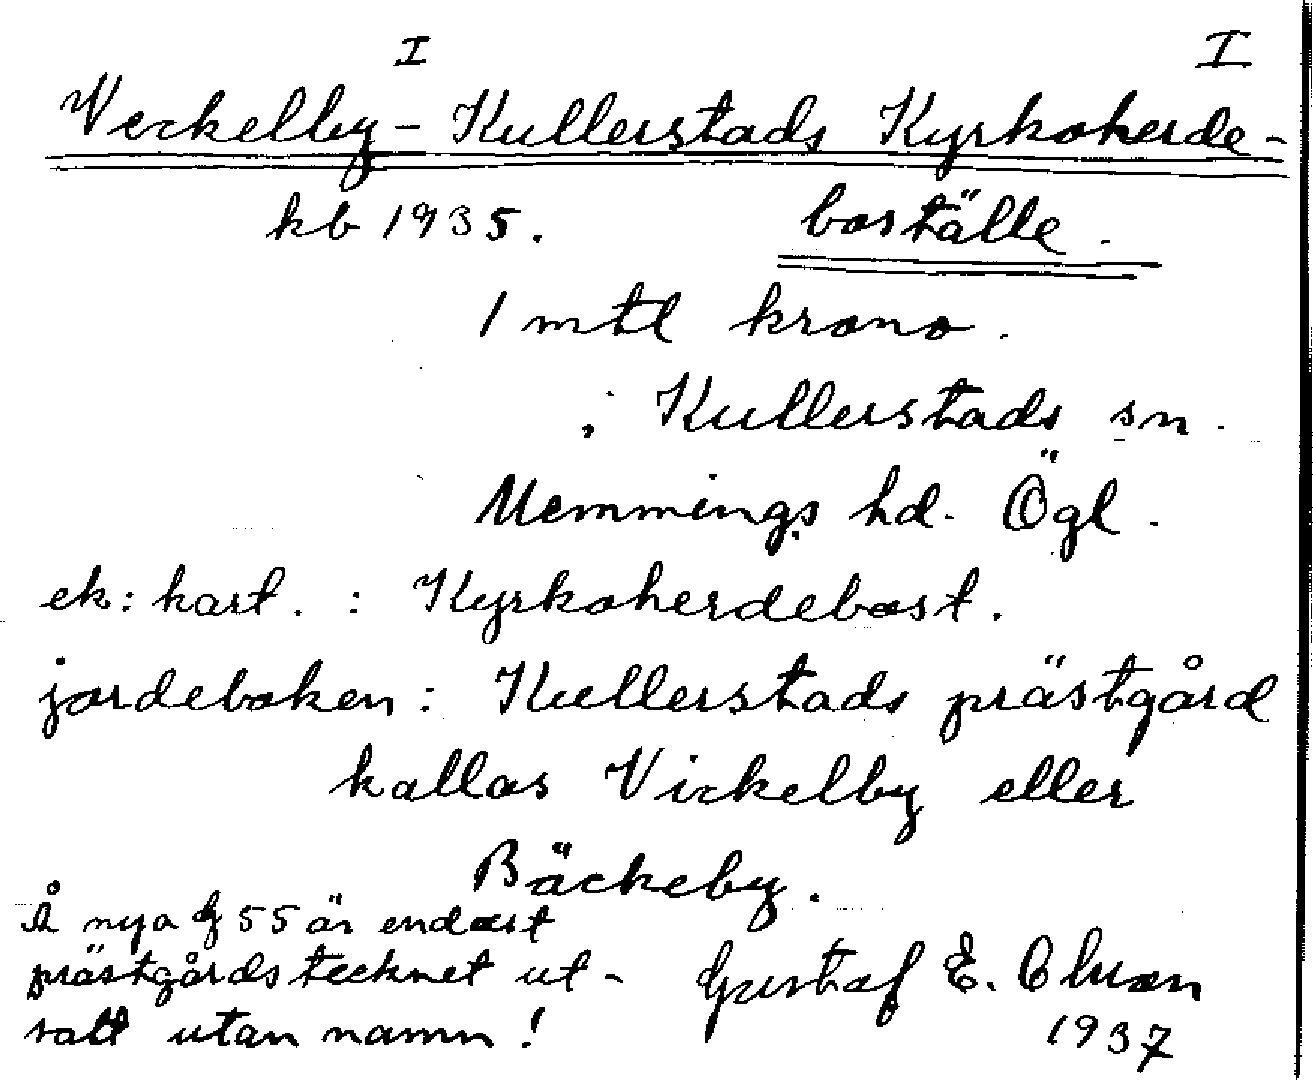 I I
Veckelby - Kullerstads Kyrkoherde-
kb 1935. boställe.
1 mtl krono.
i Kullerstads sn.
Memmings hd. Ögl.
ek: kart. : Kyrkoherdebost.
jordeboken: Kullerstads prästgård
kallas Vickelby eller
Bäckeby.
Å nya 55 är endast
prästgårdstecknet ut-
satt utan namn!
Gustaf E.
1937